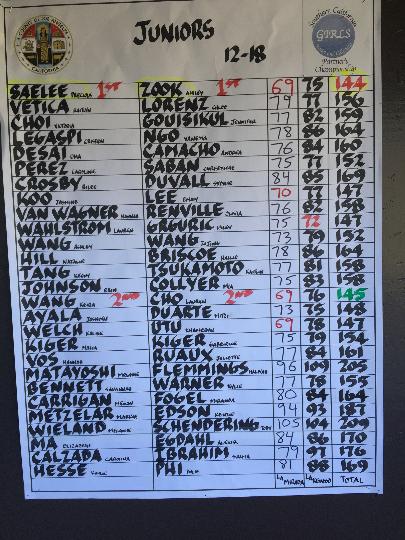 JUNIORS
12-18
Southern California
GIRLS
Partner's
Championship
CALIFORNIA
SAELEE 1st ZOOK ASHLEY 1st 69 75 144
VETICA LORENZ 79 77 156
CHOI VICTORIA GOUISIKUL JENNIFER 77 82 159
LEGASPI NGO VANESSA 78 86 164
DESAI UMA CAMACHO ANDREA 76 84 160
PEREZ CAROLINE SABAN 75 77 152
CROSBY DUVALL 84 85 169
KOO JASMINE LEE EMILY 70 77 147
VAN WAGNER HANNAH RENVILLE OLIVIA 76 82 158
WAHLSTROM LAUREN GRGURIC 75 72 147
WANG ASHLEY WANG 73 79 152
HILL NATALIE BRISCOE HALLIE 78 86 164
TANG TSUKAMOTO 77 81 158
JOHNSON ERIN COLLYER MIA 75 83 158
WANG 2nd CHO LAUREN 2nd 69 76 145
AYALA DUARTE 73 75 148
WELCH UTU 69 78 147
KIGER KIGER GABRIELLE 75 79 154
VOS RUAUX JULIETTE 77 84 161
MATAYOSHI MELANIE FLEMMINGS 96 109 205
BENNETT SAVANNAH WARNER 77 78 155
CARRIGAN MEGAN FOGEL MIRANDA 80 84 164
METZELAR EDSON 94 93 187
WIELAND MELANIE SCHENDERING 105 104 209
MA ELIZABETH EGDAHL 84 86 170
CALZADA CAROLINA IBRAHIM 79 97 176
HESSE PHI 81 88 169
LA MIRADA LAKEWOOD TOTAL